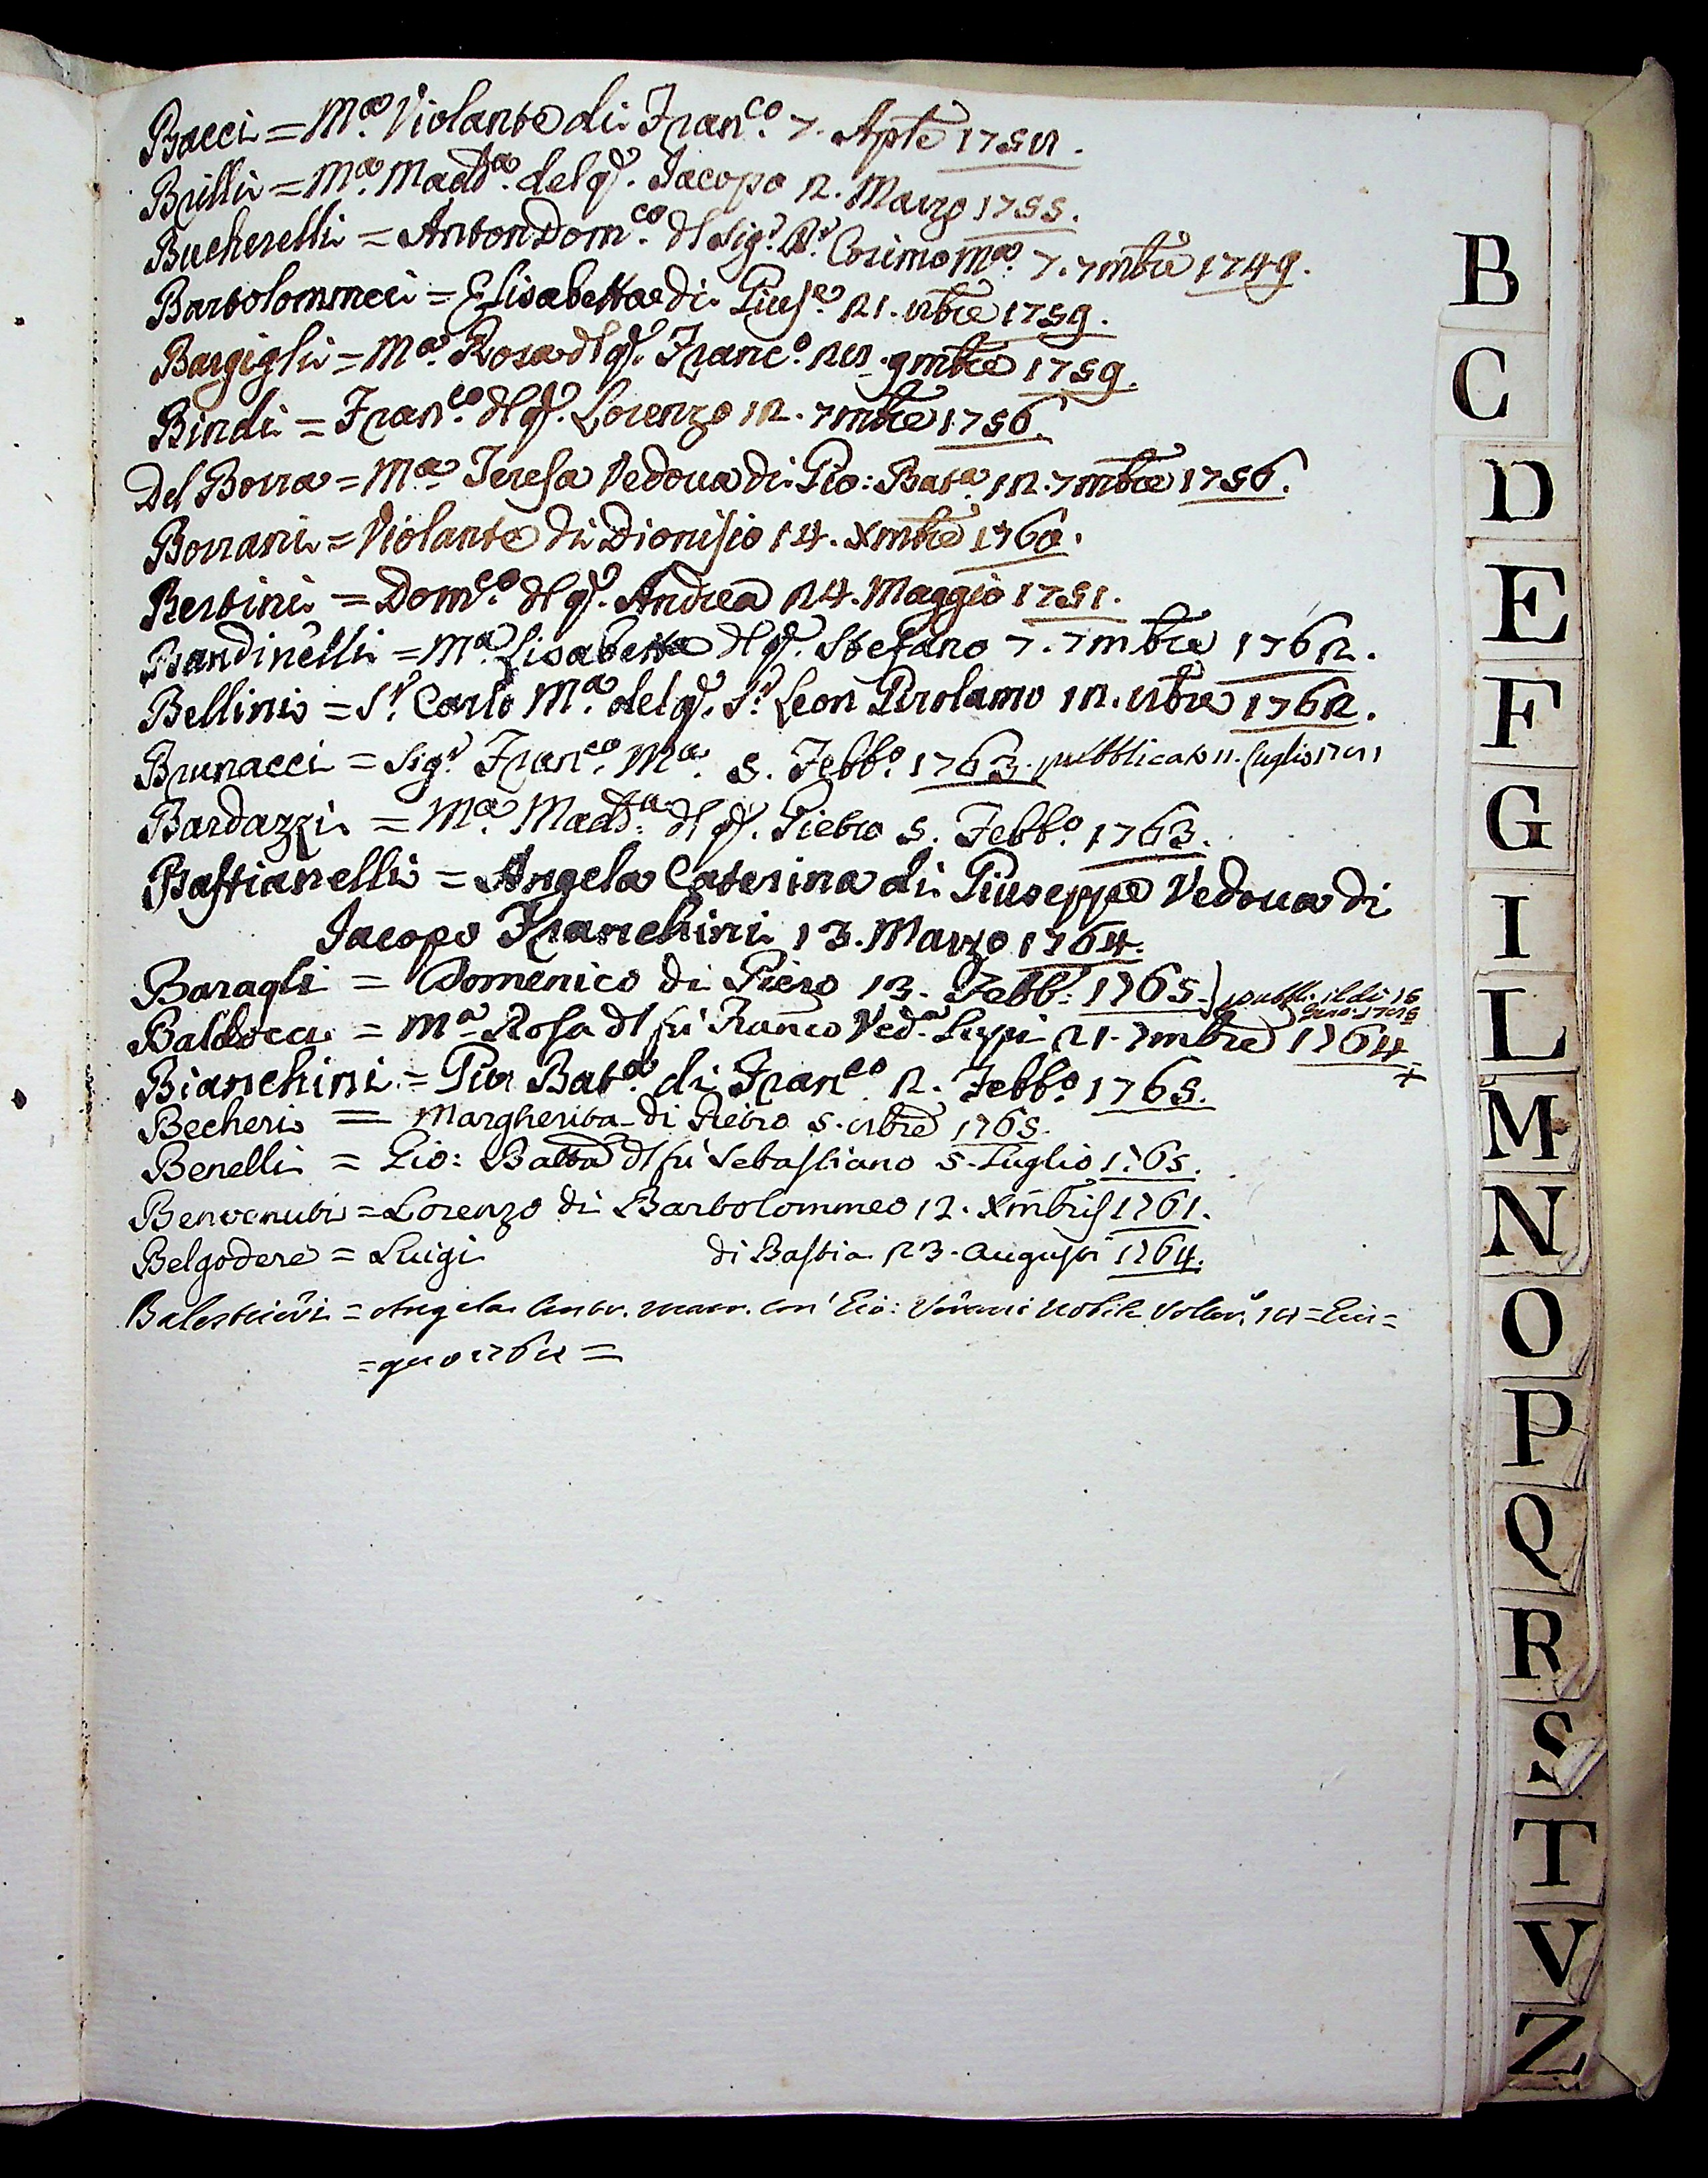 Bacci = M.ª Violante di Fran.co 7. Aple 1758.
Brilli = M.ª Madd.ª del q. Jacopo 2. Marzo 1755.
Bucherelli = Anton Dom.co dl Sig.r D.r Cosimo M.ª 7. 7mbre 1749.
Bartolommei = Elisabetta di Gius.e 21. 8bre 1759.
Bargigli = M.ª Rosa dl q. Franc.o 28. 9mbre 1759.
Bindi = Fran.co dl q. Lorenzo 12. 7mbre 1756.
Del Borra = M.ª Teresa Vedova di Gio: Bat.ª 12. 7mbre 1756.
Borrani = Violante di Dionisio 14. Xmbre 1760.
Bertini = Dom.co dl q. Andrea 24. Maggio 1751.
Bandinelli = M.ª Lisabetta dl q. Stefano 7. 7mbre 1762.
Bellini = S.r Carlo M.ª del q. S.r Leon Girolamo 12. 8bre 1762.
Brunacci = Sig.r Fran.co M.ª 5. Febb.o 1763. pubblicato 11. Luglio
Bardazzi = M.ª Madd.ª dl q. Pietro 5. Febb.o 1763.
Bastianelli = Angela Caterina di Giuseppe Vedova di
Jacopo Franchini 13. Marzo 1764.
Baragli = Domenico di Piero 13. Febb: 1765. pubbli. il dì 16
Baldocci = M.ª Rosa dl fù Franco Ved.ª Lupi 21. 7mbre 1764
+
Bianchini = Gio Bat.ª di Fran.co 2. Febb.o 1765.
Becheri = Margherita di Pietro 5. 8bre 1765.
Benelli = Gio: Batta dl fù Sebastiano 5. Luglio 1765.
Benvenuti = Lorenzo di Bartolommeo 12. Xmbris 1761.
Belgodere = Luigi di Bastia 23. Augusti 1764.
Balestrieri = Angela con Gio: Nobile 18 = Giu=
=gno 1768 =
B
C
D
E
F
G
I
L
M
N
O
P
Q
R
S
T
V
Z